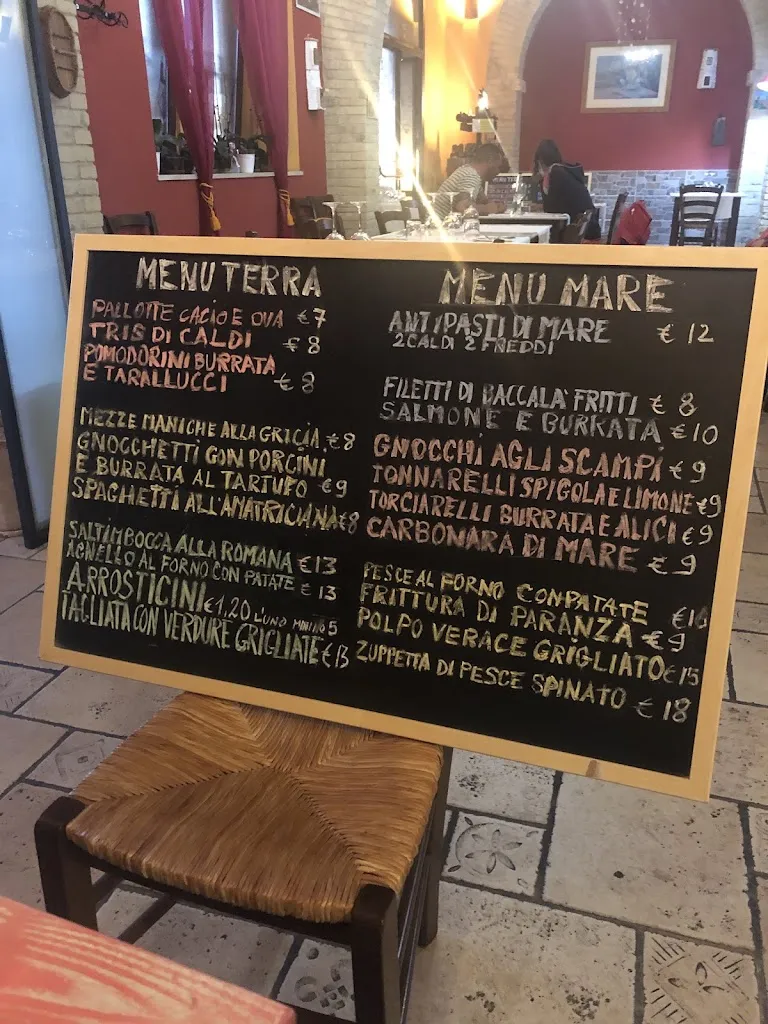 MENU TERRA
PALLOTTE CACIO E OVA €7
TRIS DI CALDI €8
POMODORINI BURRATA
E TARALLUCCI €8
MEZZE MANICHE ALLA GRICIA €8
GNOCCHETTI CON PORCINI
E BURRATA AL TARTUFO €9
SPAGHETTI ALL'AMATRICIANA €8
SALTIMBOCCA ALLA ROMANA €13
AGNELLO AL FORNO CON PATATE €13
ARROSTICINI €1,20 L'UNO MINIMO 5
TAGLIATA CON VERDURE GRIGLIATE €13
MENU MARE
ANTIPASTI DI MARE €12
2 CALDI 2 FREDDI
FILETTI DI BACCALA' FRITTI €8
SALMONE E BURRATA €10
GNOCCHI AGLI SCAMPI €9
TONNARELLI SPIGOLA E LIMONE €9
TORCIARELLI BURRATA E ALICI €9
CARBONARA DI MARE €9
PESCE AL FORNO CON PATATE
FRITTURA DI PARANZA €9
POLPO VERACE GRIGLIATO €15
ZUPPETTA DI PESCE SPINATO €18